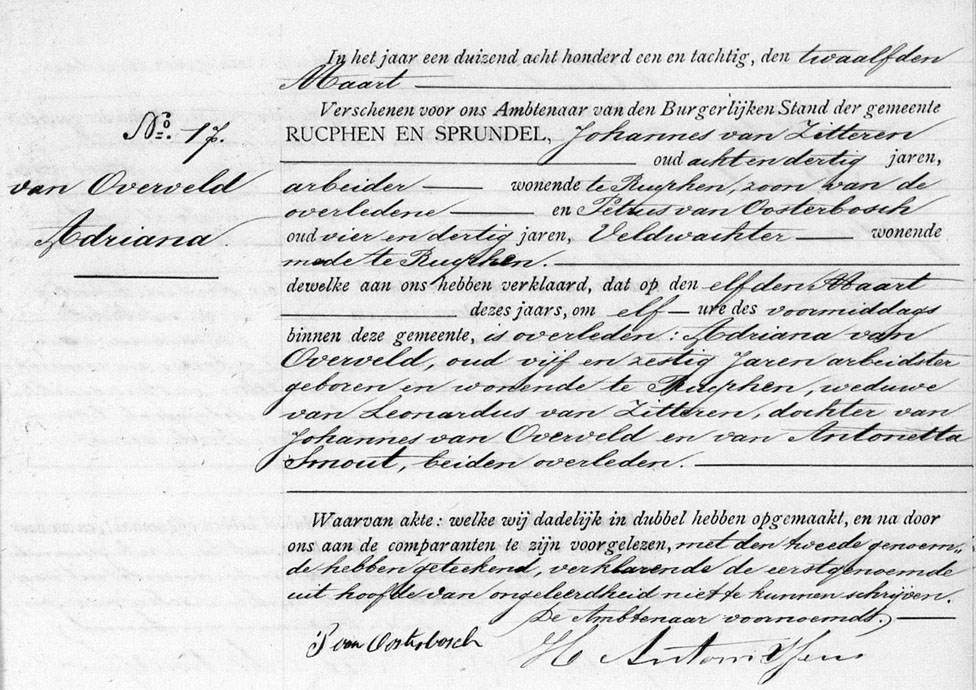 In het jaar een duizend acht honderd een en tachtig, den twaalfden
Maart
Verschenen voor ons Ambtenaar van den Burgerlijken Stand der gemeente
No. 17.
RUCPHEN EN SPRUNDEL, Johannes van Zitteren
oud acht en dertig jaren,
van Overveld
arbeider wonende te Rucphen, zoon van de
overledene en Petrus van Oosterbosch
Adriana
oud vier en dertig jaren, Veldwachter wonende
mede te Rucphen.
dewelke aan ons hebben verklaard, dat op den elfden Maart
dezes jaars, om elf ure des voormiddags
binnen deze gemeente, is overleden: Adriana van
Overveld, oud vijf en zestig Jaren arbeidster
geboren en wonende te Rucphen, weduwe
van Leonardus van Zitteren, dochter van
Johannes van Overveld en van Antonetta
Smout, beiden overleden.
Waarvan akte: welke wij dadelijk in dubbel hebben opgemaakt, en na door
ons aan de comparanten te zijn voorgelezen, met den tweede genoem„
de hebben geteekend, verklarende de eerstgenoemde
uit hoofde van ongeleerdheid niet te kunnen schrijven.
De Ambtenaar voornoemd.
P van Oosterbosch
H Antonissen